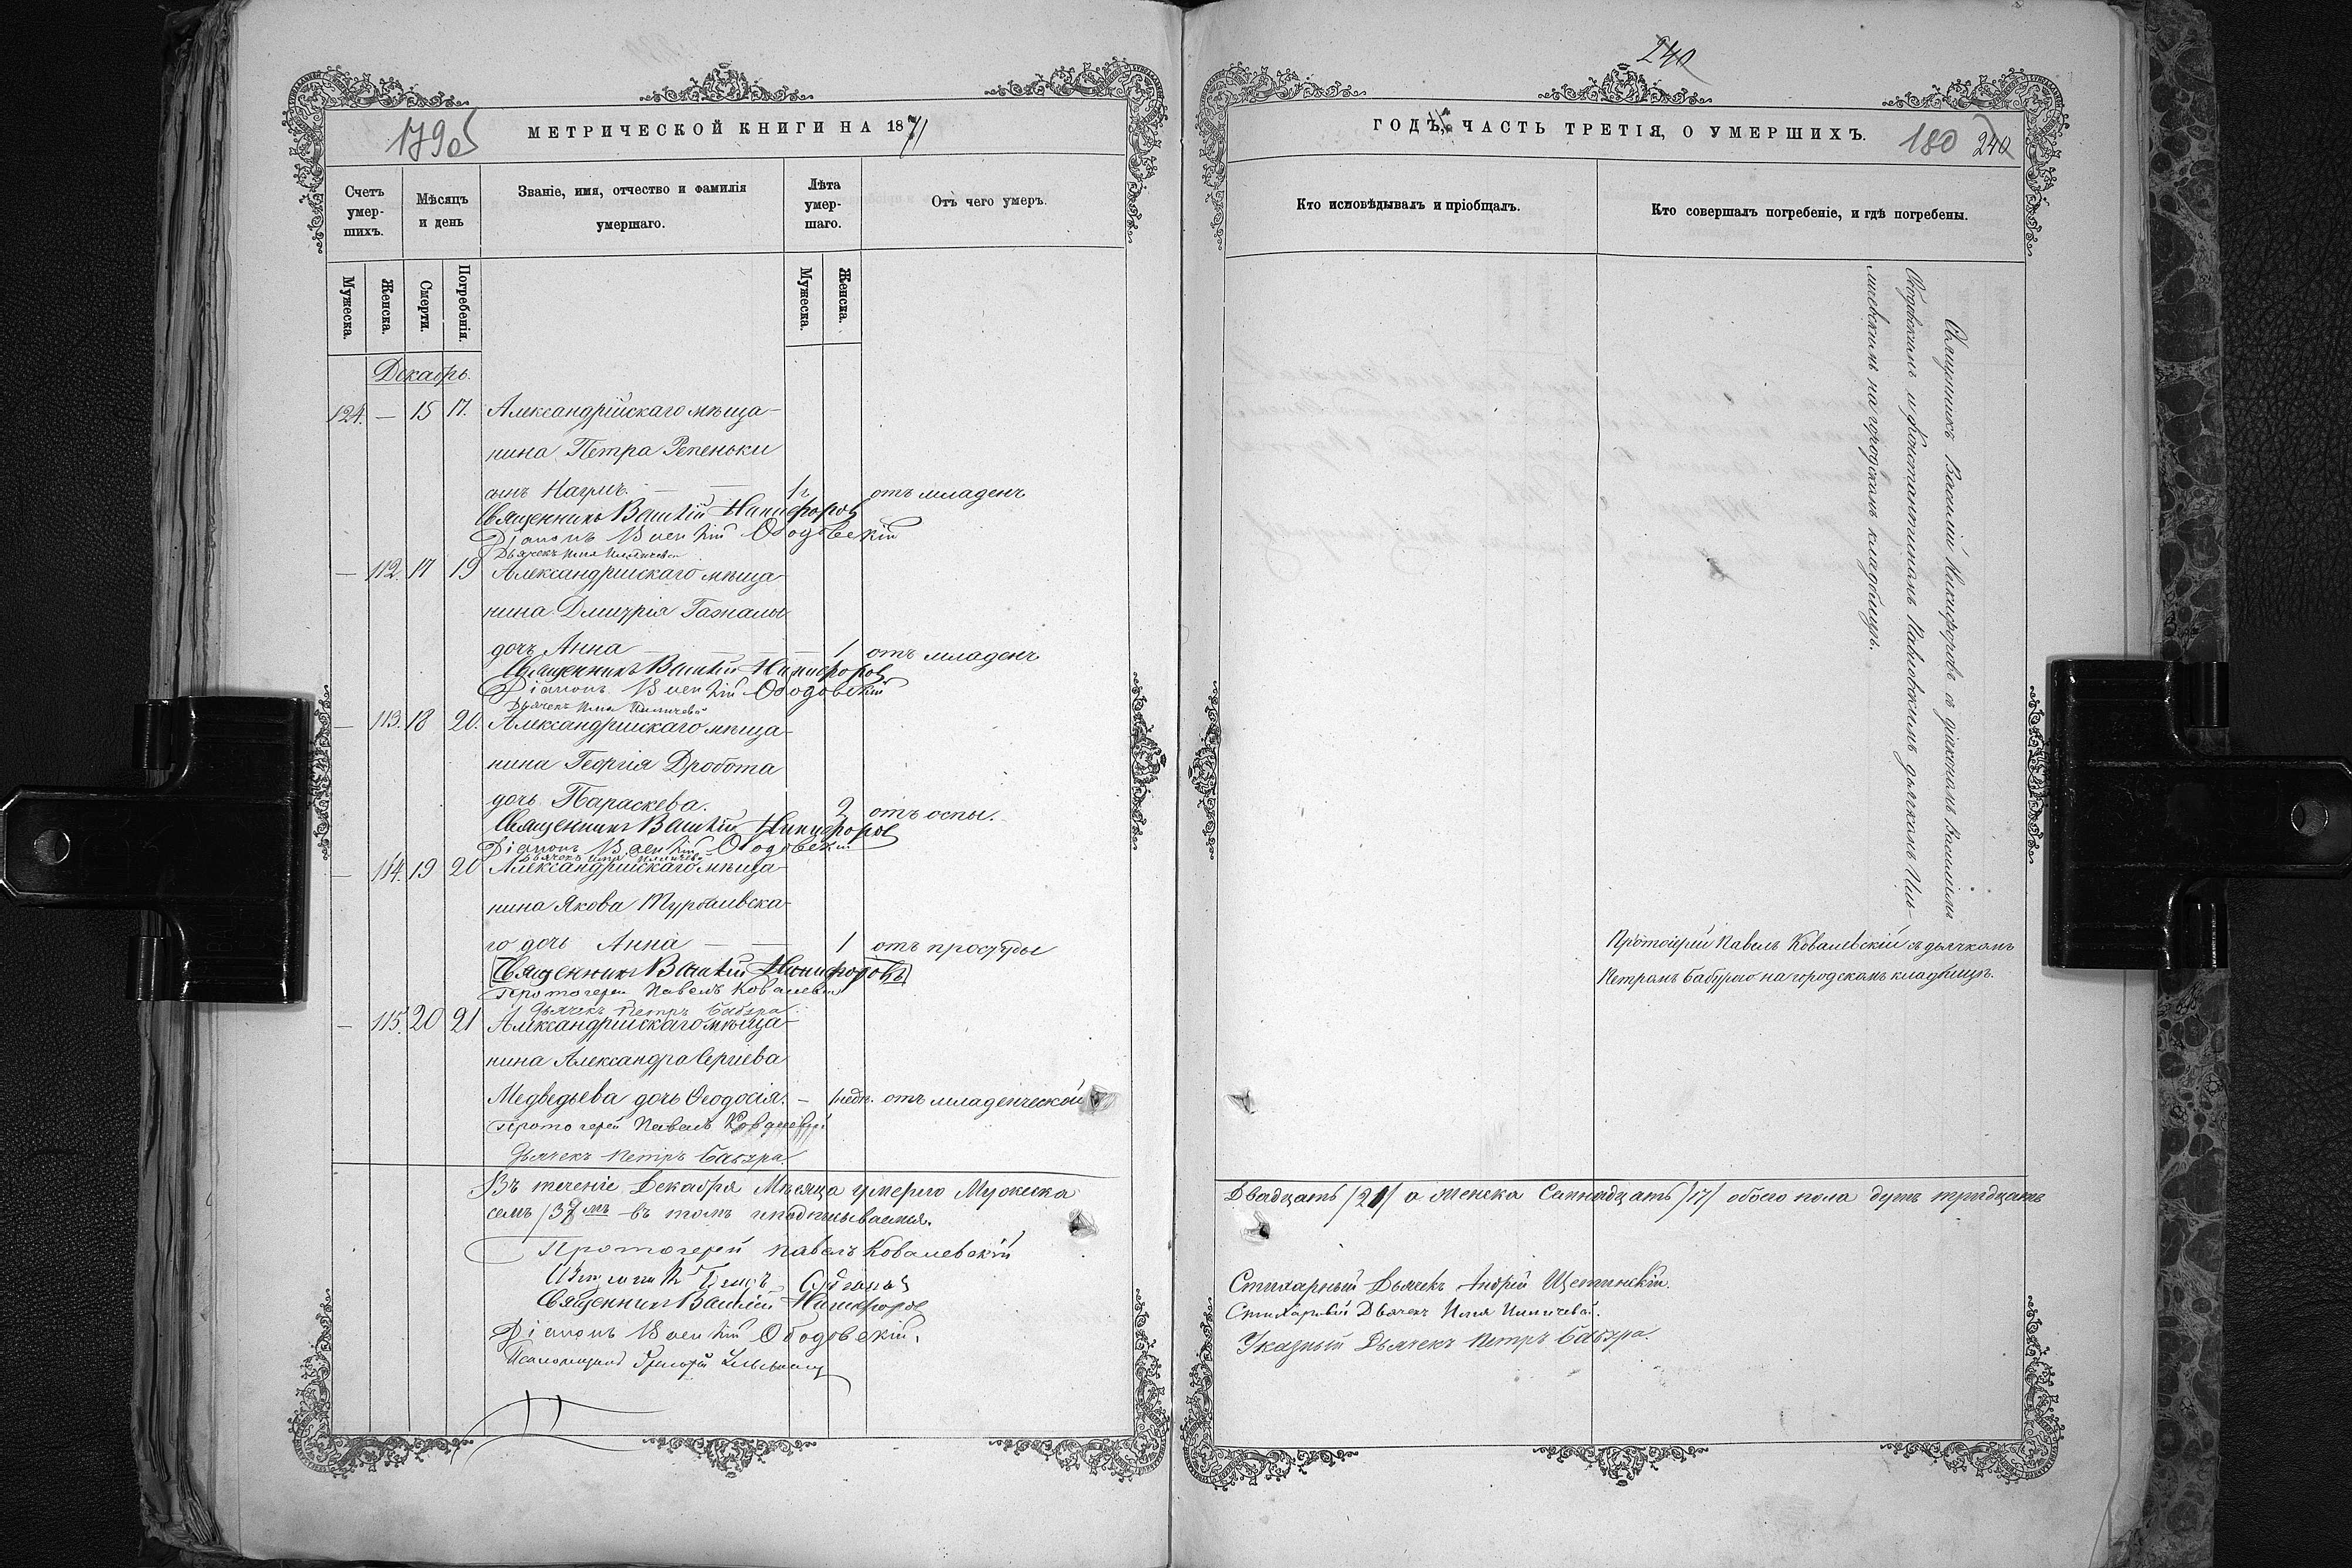 179об
МЕТРИЧЕСКОЙ КНИГИ НА 1871
Счетъ умер-шихъ.
Мѣсяцъ и день
Званіе, имя, отчество и фамилія умершаго.
Лѣта умер-шаго.
Отъ чего умеръ.
Мужеска.
Женска.
Смерти.
Погребенія.
Мужеска.
Женска.
Декабрь.
124. — 15 17. Александрійскаго мѣща-
нина Петра Репеньки
сынъ Наумъ. — — 1 г. отъ младенч
Священникъ Василій Никифоровъ
Діаконъ Василій Ободовскій
Дьячекъ Илья
— 112. 17 19 Александрійскаго мѣща-
нина Дмитрія
дочь Анна — — 1 отъ младенч
Священникъ Василій Никифоровъ
Діаконъ Василій Ободовскій
Дьячекъ Илья
— 113. 18 20. Александрійскаго мѣща-
нина Георгія Дробота
дочь Параскева. 2 отъ оспы.
Священникъ Василій Никифоровъ
Діаконъ Василій Ободовскій
Дьячекъ Илья
— 114. 19 20 Александрійскаго мѣща-
нина Якова
го дочь Анна — — 1 отъ простуды
Священникъ Василій Никифоровъ
Протоіерей Павелъ Ковалевскій
Дьячекъ Петръ Бабура
— 115. 20 21 Александрійскаго мѣща-
нина Александра Сергіева
Медведьева дочь Ѳеодосія. — 1 нед. отъ младенческой
Протоіерей Павелъ Ковалевскій
Дьячекъ Петръ Бабура.
Въ теченіе Декабря Мѣсяца умерло Мужеска
семь /37мь въ томъ и подписываемся.
Протоіерей Павелъ Ковалевскій
Священникъ Василій Никифоровъ
Діаконъ Василій Ободовскій.
Псаломщикъ Григорій
240
ГОДЪ, ЧАСТЬ ТРЕТІЯ, О УМЕРШИХЪ.
180 240
Кто исповѣдывалъ и пріобщалъ.
Кто совершалъ погребеніе, и гдѣ погребены.
Священникъ Василій Никифоровъ съ діакономъ Василіемъ
Ободовскимъ и Константиномъ дьячкомъ Иль-
на городскомъ кладбищѣ.
Протоіерей Павелъ Ковалевскій съ дьячкомъ
Петромъ Бабурою на городскомъ кладбищѣ.
Двадцать /20/ а женска Семнадцать /17/ обоего пола душъ тридцать
Стихарный Дьячекъ Андрей Щепинскій.
Стихарный Дьячекъ Илья
Указный Дьячекъ Петръ Бабура.